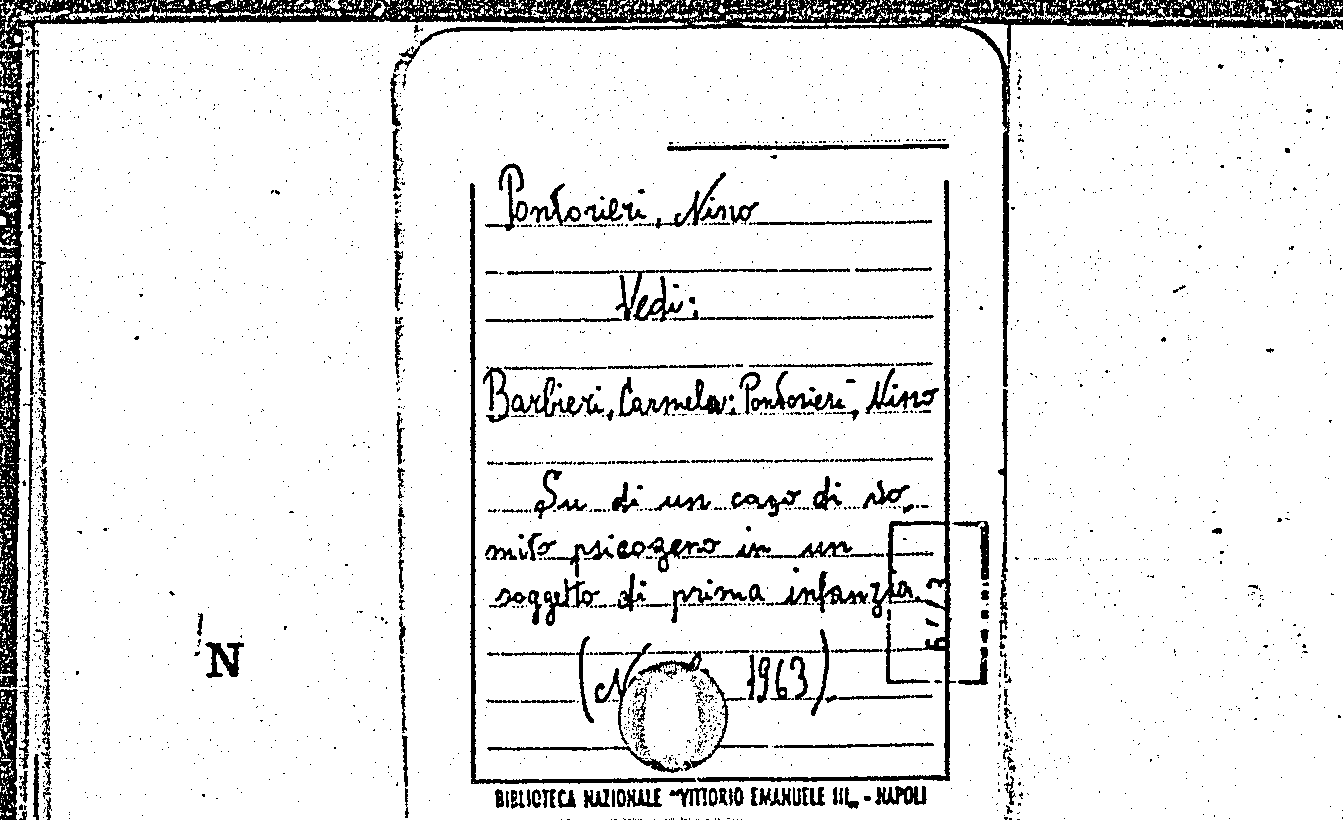 Pontorieri, Nino
Vedi:
Barbieri, Carmela; Pontorieri, Nino
Su di un caso di vo,
mito psicogeno in un
soggetto di prima infanzia.
( 1963).
N
BIBLIOTECA NAZIONALE "VITTORIO EMANUELE III„ - NAPOLI